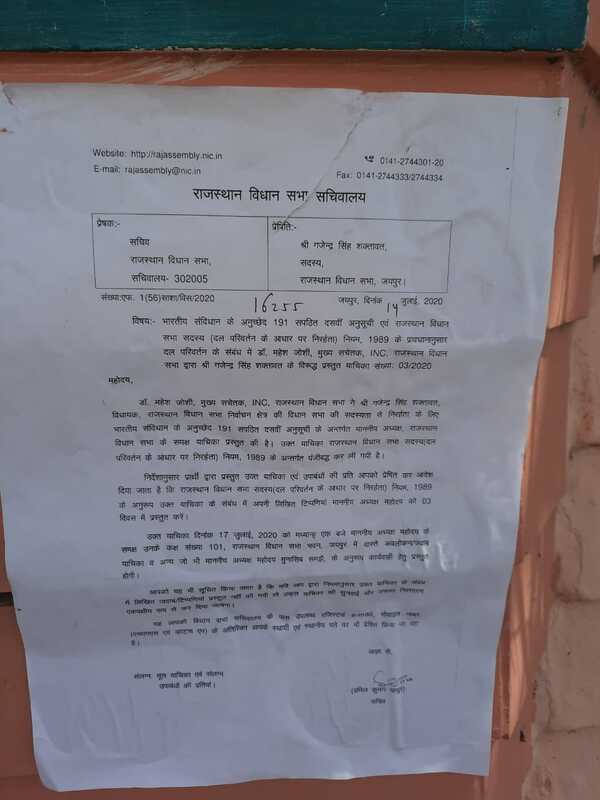 Website: http://rajassembly.nic.in
0141-2744301-20
E-mail: rajassembly@nic.in
Fax: 0141-2744333/2744334
राजस्थान विधान सभा सचिवालय
प्रेषक:-
सचिव
राजस्थान विधान सभा,
सचिवालय- 302005
प्रेषिति:-
श्री गजेन्द्र सिंह शक्तावत,
सदस्य,
राजस्थान विधान सभा, जयपुर।
संख्या:एफ. 1(56)साशा/विस/2020 16255 जयपुर, दिनांक 14 जुलाई, 2020
विषय:- भारतीय संविधान के अनुच्छेद 191 सपठित दसवीं अनुसूची एवं राजस्थान विधान
सभा सदस्य (दल परिवर्तन के आधार पर निरर्हता) नियम, 1989 के प्रावधानानुसार
दल परिवर्तन के संबंध में डॉ. महेश जोशी, मुख्य सचेतक, INC, राजस्थान विधान
सभा द्वारा श्री गजेन्द्र सिंह शक्तावत के विरूद्ध प्रस्तुत याचिका संख्या: 03/2020
महोदय,
डॉ. महेश जोशी, मुख्य सचेतक, INC, राजस्थान विधान सभा ने श्री गजेन्द्र सिंह शक्तावत,
विधायक, राजस्थान विधान सभा निर्वाचन क्षेत्र की विधान सभा की सदस्यता से निर्हाता के लिए
भारतीय संविधान के अनुच्छेद 191 सपठित दसवीं अनुसूची के अन्तर्गत माननीय अध्यक्ष, राजस्थान
विधान सभा के समक्ष याचिका प्रस्तुत की है। उक्त याचिका राजस्थान विधान सभा सदस्य(दल
परिवर्तन के आधार पर निरर्हता) नियम, 1989 के अन्तर्गत पंजीबद्ध कर ली गयी है।
निर्देशानुसार प्रार्थी द्वारा प्रस्तुत उक्त याचिका एवं उपाबंधों की प्रति आपको प्रेषित कर आदेश
दिया जाता है कि राजस्थान विधान सभा सदस्य(दल परिवर्तन के आधार पर निरर्हता) नियम, 1989
के अनुरूप उक्त याचिका के संबंध में अपनी लिखित टिप्पणियां माननीय अध्यक्ष महोदय को 03
दिवस में प्रस्तुत करें।
उक्त याचिका दिनांक 17 जुलाई, 2020 को मध्यान्ह एक बजे माननीय अध्यक्ष महोदय के
समक्ष उनके कक्ष संख्या 101, राजस्थान विधान सभा भवन, जयपुर में वास्ते अवलोकन/जवाब
याचिका व अन्य जो भी माननीय अध्यक्ष महोदय मुनासिब समझें, के अनुसार कार्यवाही हेतु प्रस्तुत
होगी।
आपको यह भी सूचित किया जाता है कि यदि आप द्वारा नियमानुसार उक्त याचिका के संबंध
में लिखित जवाब/टिप्पणियां प्रस्तुत नहीं की गयी तो उक्त याचिका की सुनवाई और उसका निस्तारण
एकपक्षीय रूप से कर दिया जायेगा।
यह आपको विधान सभा सचिवालय के पास उपलब्ध मोबाइल नम्बर
के अतिरिक्त आपके स्थायी एवं स्थानीय पते पर भी प्रेषित किया जा रहा
है।
आज्ञा से,
संलग्न: मूल याचिका एवं संलग्न
उपाबंधों की प्रतियां।
(प्रमिल कुमार माथुर)
सचिव